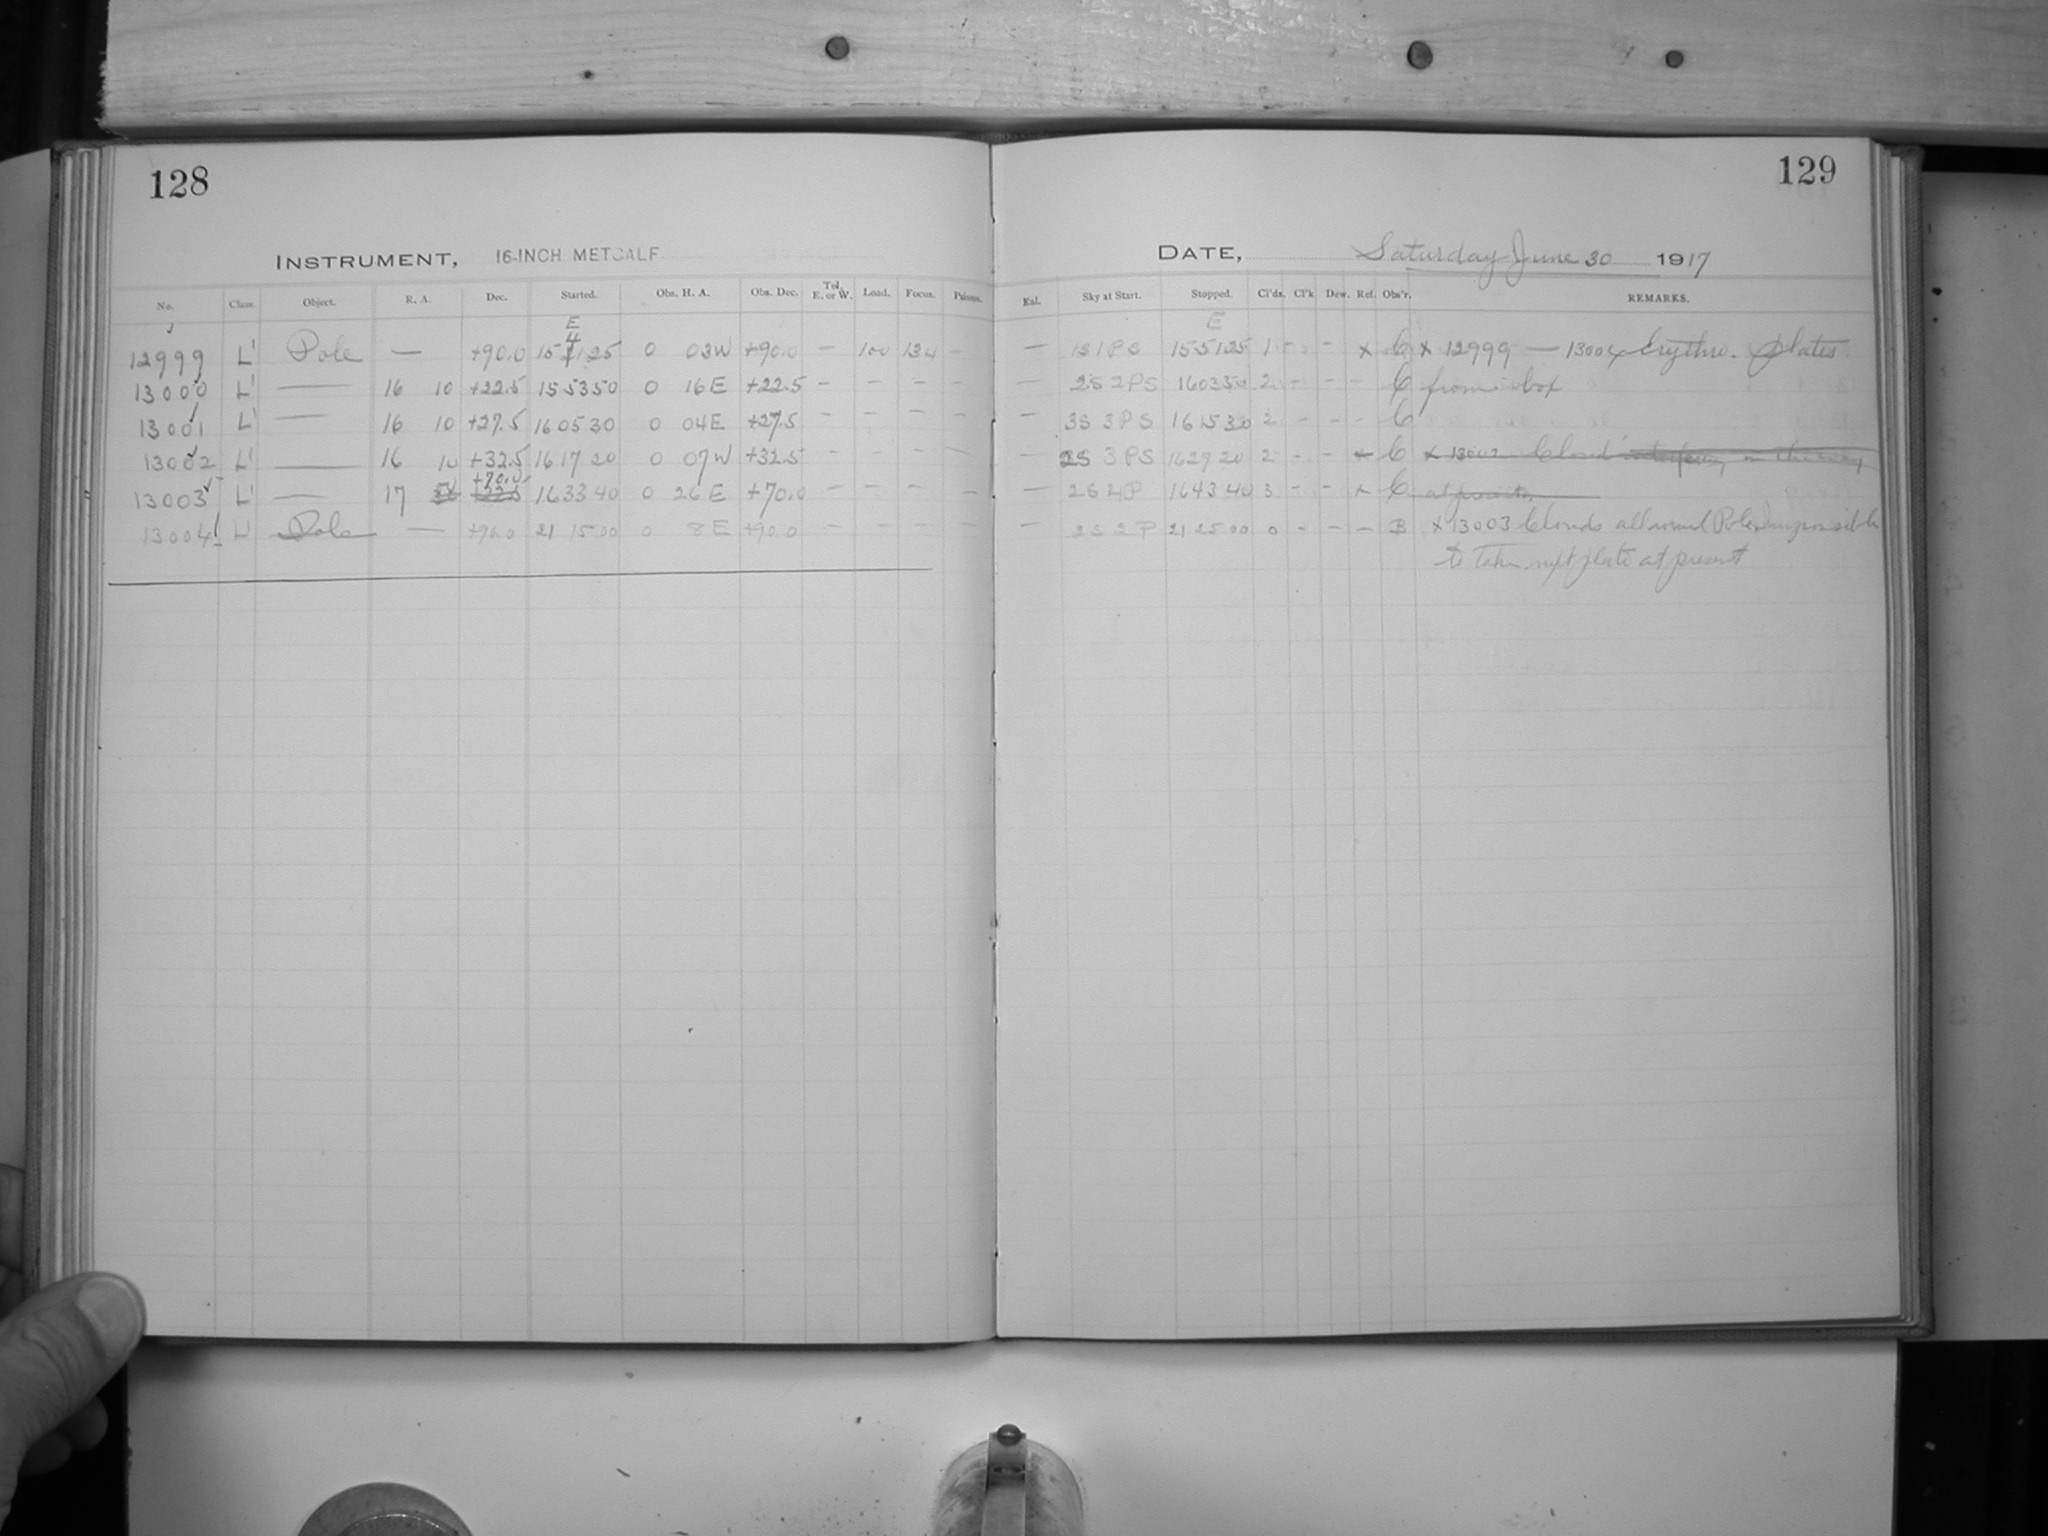 128
INSTRUMENT, 16-INCH METCALF
No. Class. Object. R. A. Dec. Started. Obs. H. A. Obs. Dec. Tel. E. or W. Load. Focus.
E
12999 L' Pole — +90.0 15 41 25 0 03W +90.0 — 100 13.4 —
13000 L' — 16 10 +22.5 15 53 50 0 16E +22.5 — — — —
13001 L' — 16 10 +27.5 16 05 30 0 04E +27.5 — — — —
13002 L' — 16 10 +32.5 16 17 20 0 07W +32.5 — — — —
+70.0
13003 L' — 17 16 33 40 0 26E +70.0 — — — —
13004 L' Pole — +90.0 21 15 00 0 8E +90.0 — — — —
129
DATE, Saturday June 30 1917
Sky at Start. Stopped. Cl'ds. Cl'k Dew. Ref. Obs'r. REMARKS.
E
— 1S 1PS 15 51 25 1 - - x C x 12999 — 13004 Erythro. plates
— 2S 2PS 16 03 50 2 - - - C from box
— 3S 3PS 16 15 30 2 - - - C
— 2S 3PS 16 29 20 2 - - x C x 13002 Cloud interfering in the way
— 2S 2P 16 43 40 3 - - x C at present
2S 2P 21 25 00 0 - - - B x 13003 Clouds all around Pole. Impossible
to take next plate at present